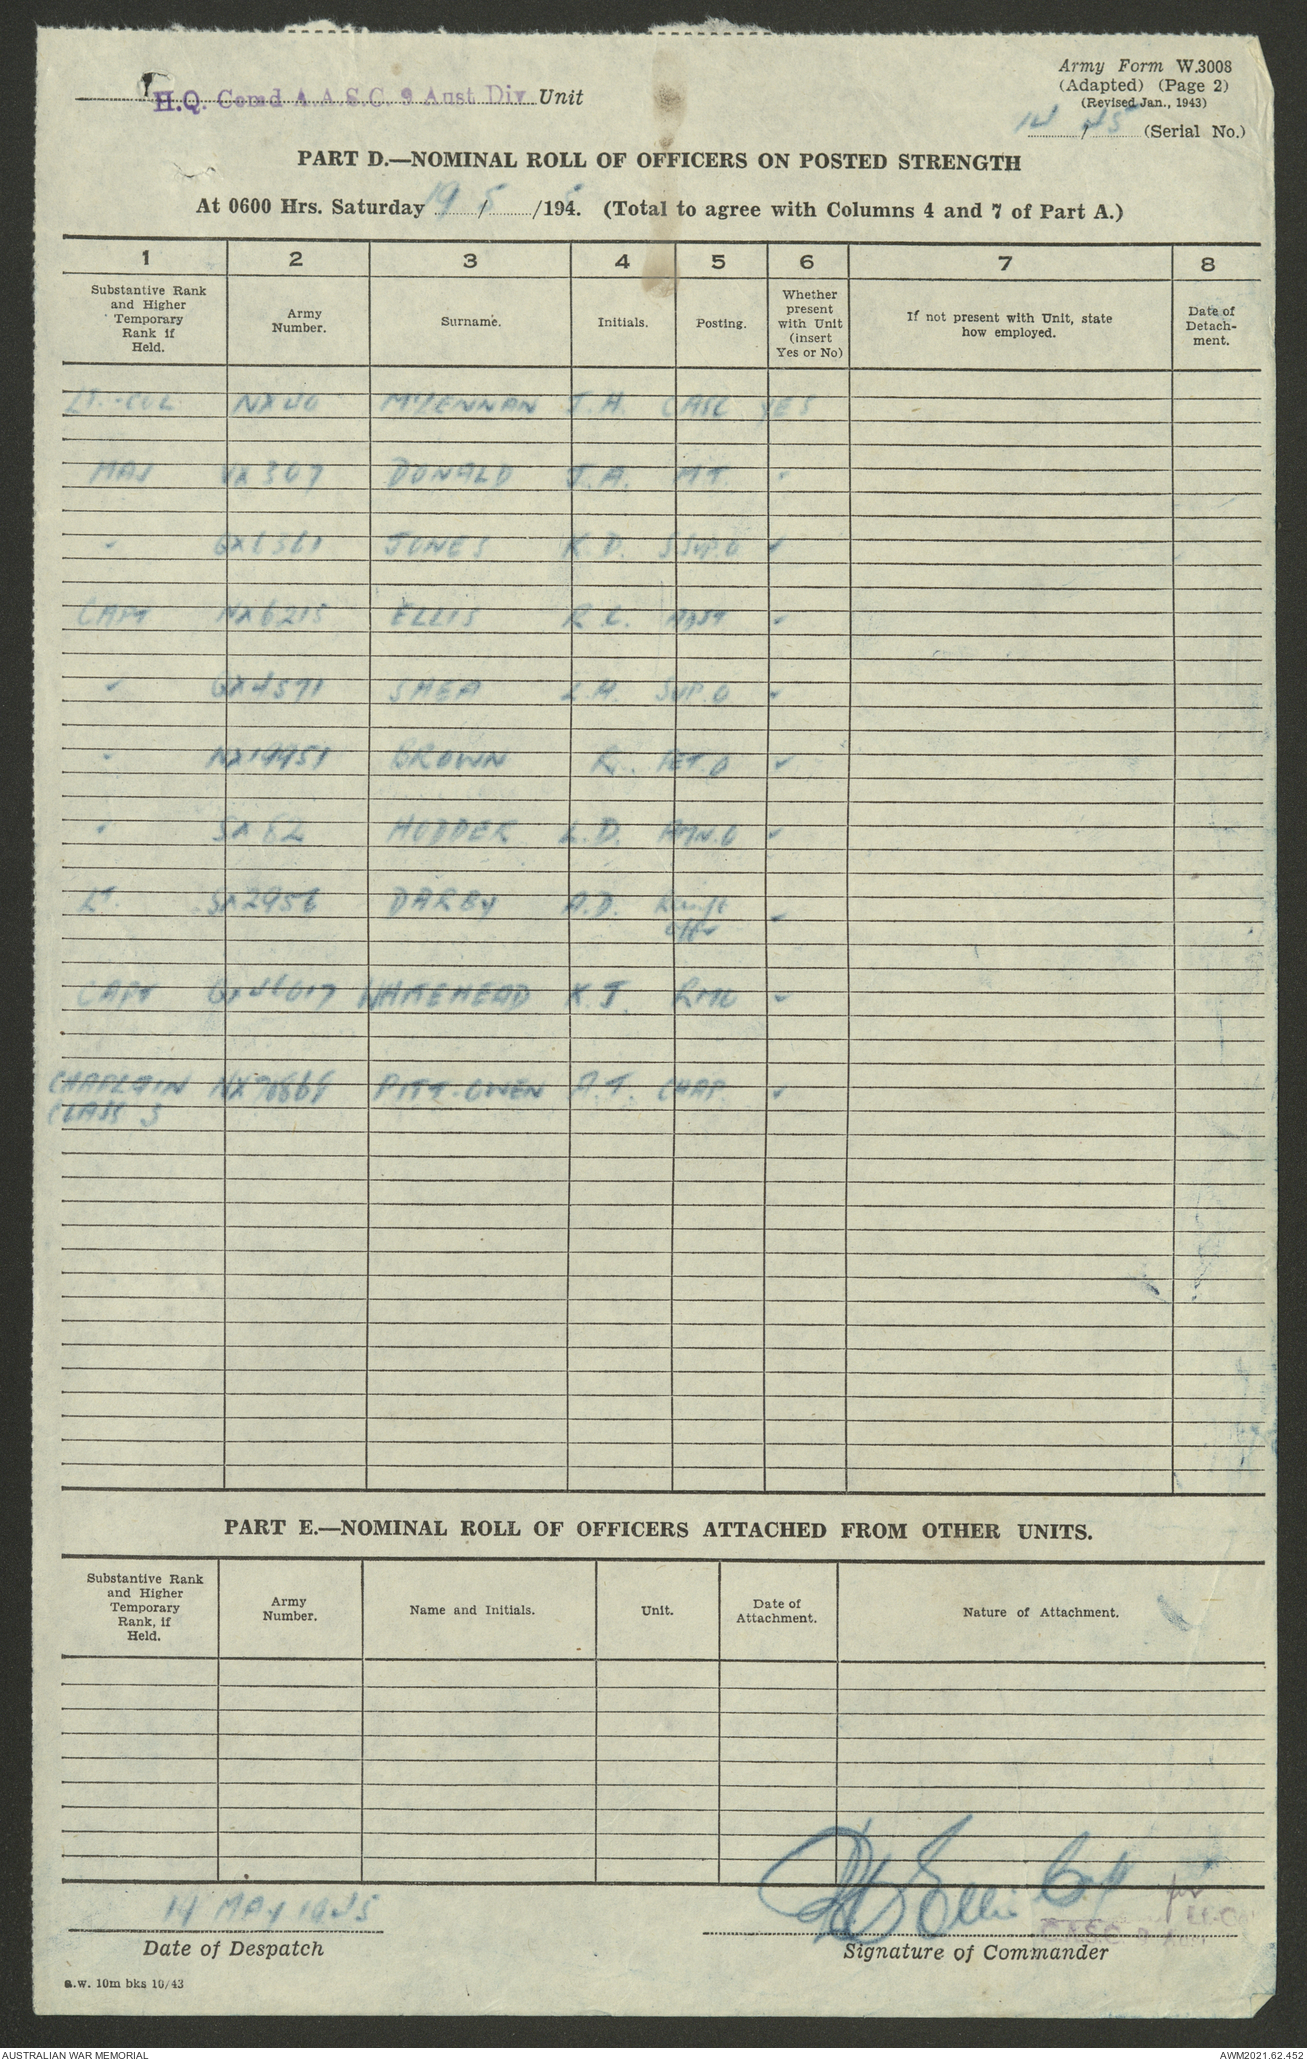 H.Q. Comd A.A.S.C. 9 Aust Div Unit
Army Form W.3008
(Adapted) (Page 2)
(Revised Jan., 1943)
14 / 45 (Serial No.)
PART D.—NOMINAL ROLL OF OFFICERS ON POSTED STRENGTH
At 0600 Hrs. Saturday 19 / 5 /1945. (Total to agree with Columns 4 and 7 of Part A.)
1 2 3 4 5 6 7 8
Substantive Rank and Higher Temporary Rank if Held.
Army Number.
Surname.
Initials.
Posting.
Whether present with Unit (insert Yes or No)
If not present with Unit, state how employed.
Date of Detach-ment.
LT.-COL NX40 McLENNAN J.H. CASC YES
MAJ VX307 DONALD J.A. MT. "
" JONES K.D. S Sup.O "
CAPT NX6215 ELLIS R.C. Adjt "
" QX4571 SHEA L.H. SUP.O "
" BROWN R. PET.O "
" SX62 HODDER L.D. AMN.O "
LT. SX2956 DARBY A.D. "
CAPT WHITEHEAD K.J. RMO "
CHAPLAIN PITT-OWEN A.T. CHAP. "
CLASS 3
PART E.—NOMINAL ROLL OF OFFICERS ATTACHED FROM OTHER UNITS.
Substantive Rank and Higher Temporary Rank, if Held.
Army Number.
Name and Initials.
Unit.
Date of Attachment.
Nature of Attachment.
14 MAY 1945
RC Ellis Capt for
Lt-Col
C.A.S.C. 9 Aust
Date of Despatch
Signature of Commander
a.w. 10m bks 10/43
AUSTRALIAN WAR MEMORIAL
AWM2021.62.452